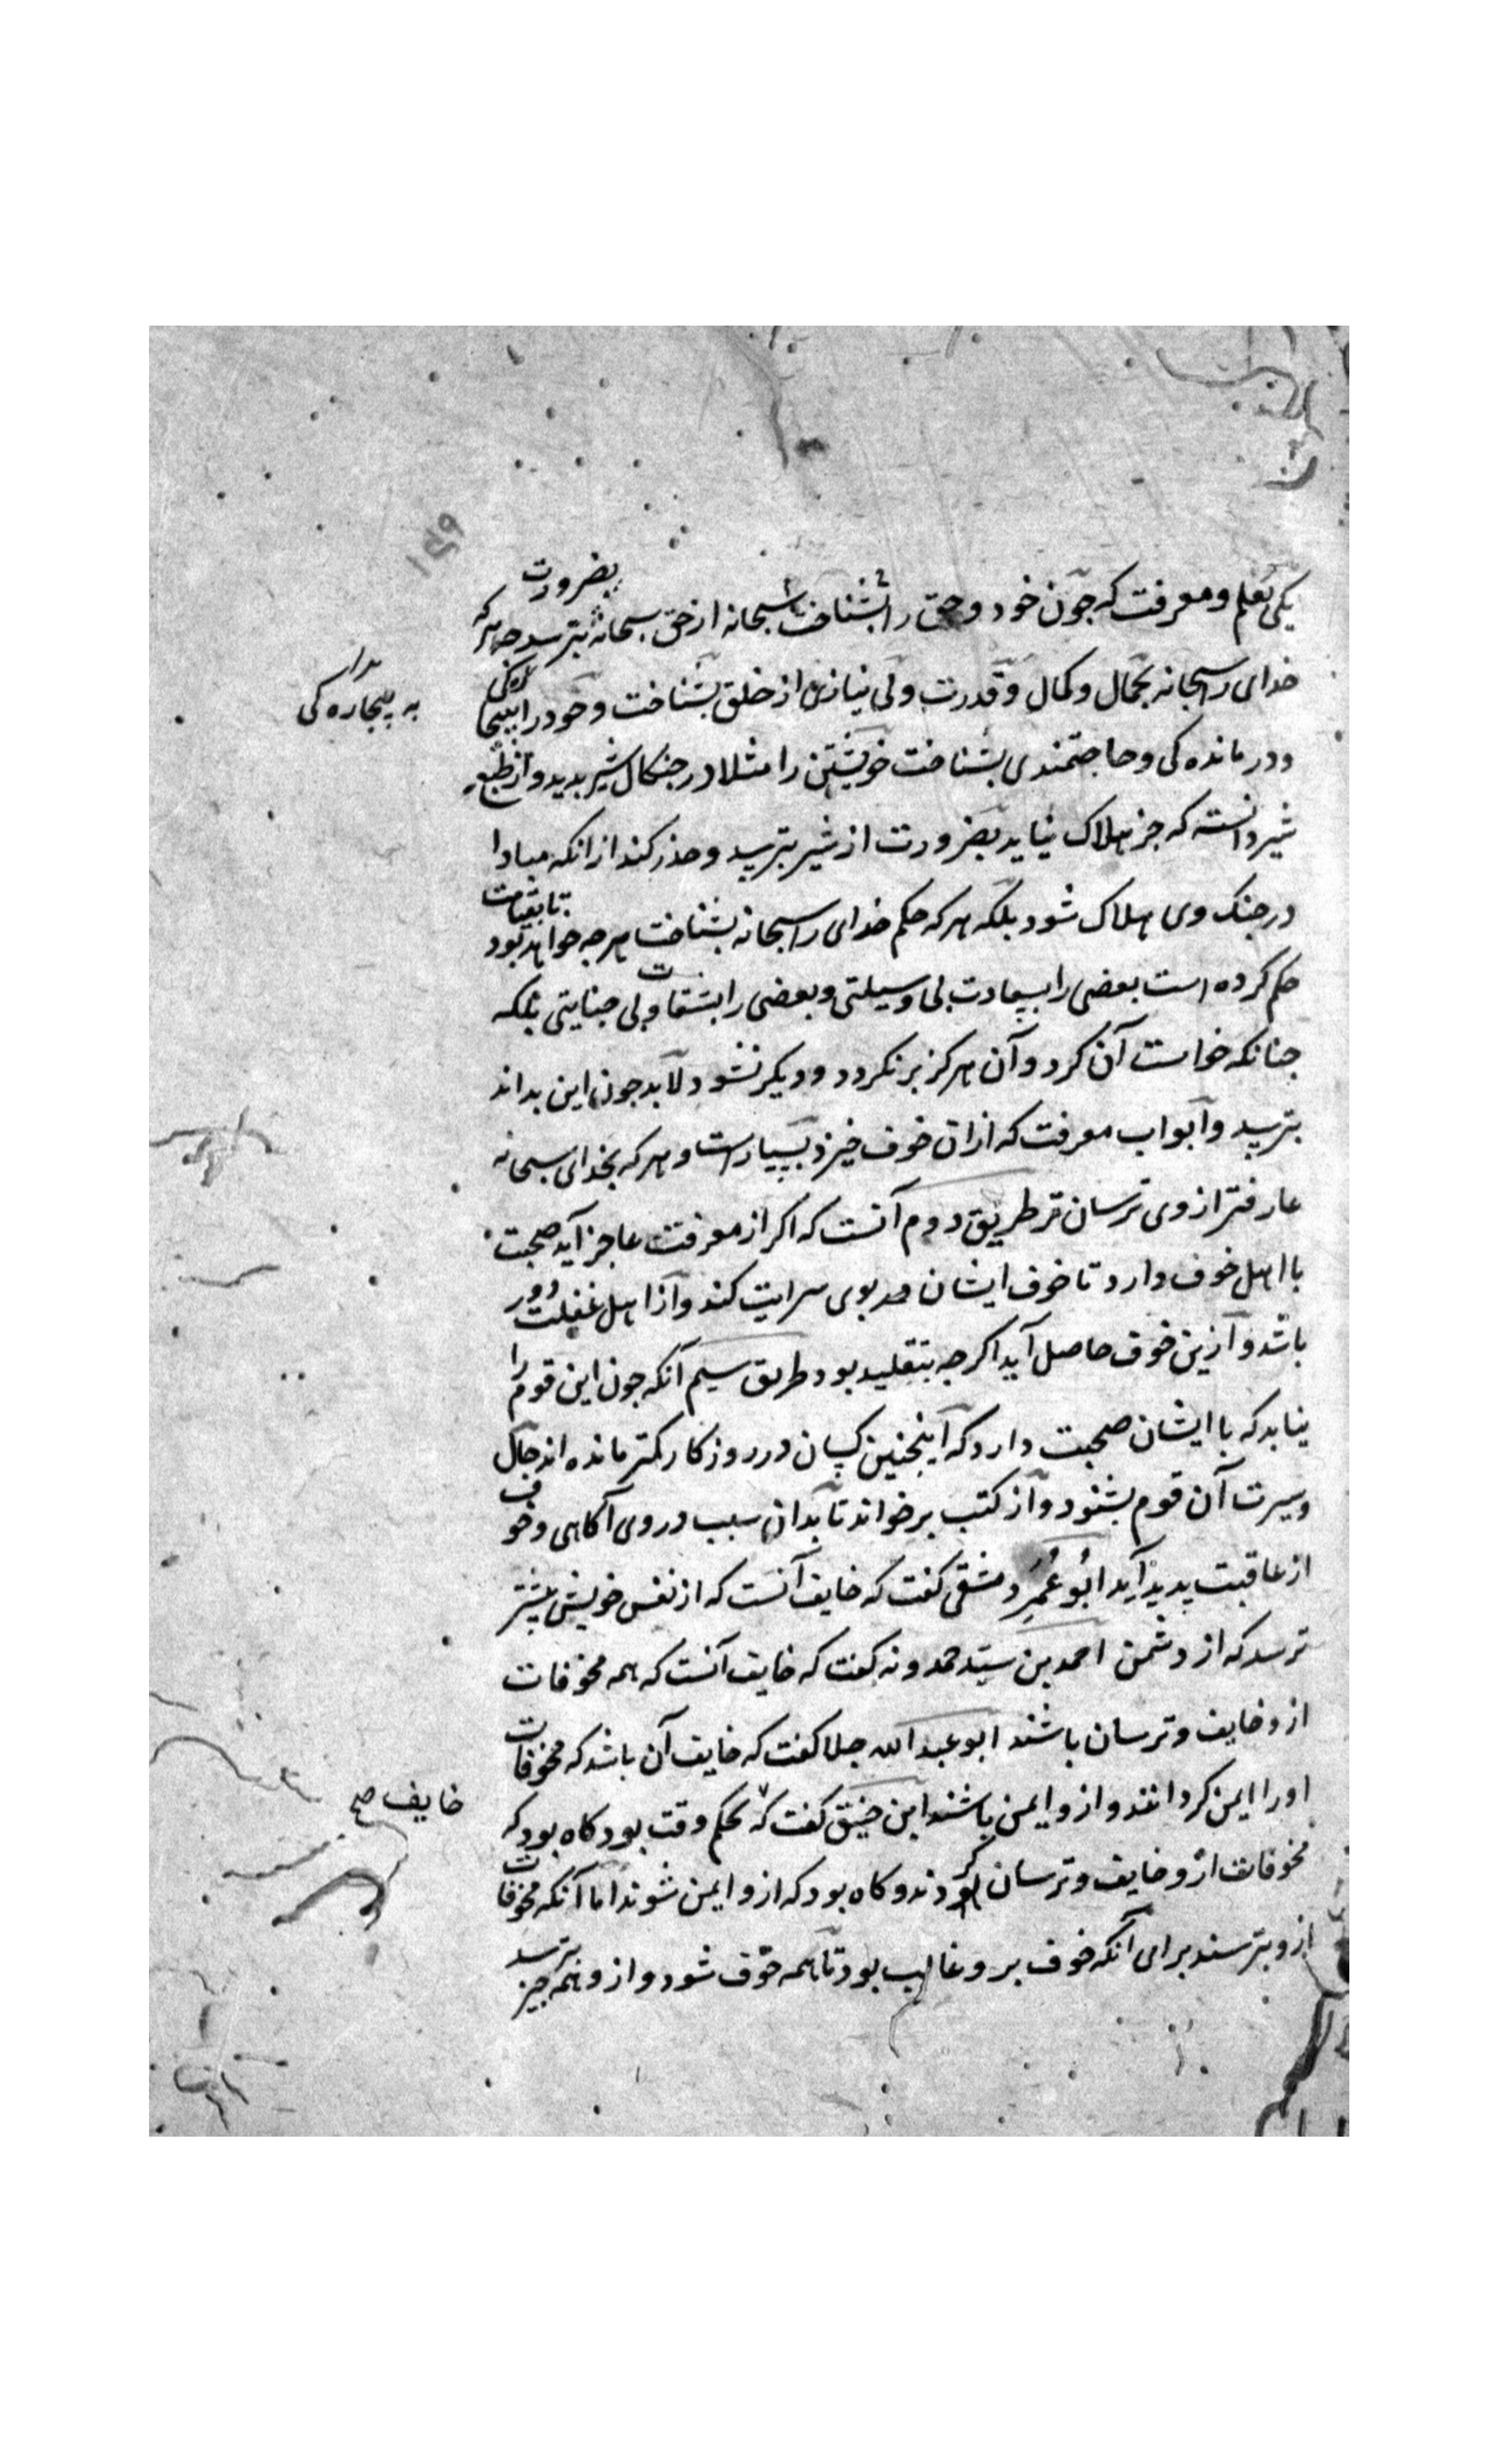 ۱۴۹
یکی بعلم و معرفت که جون خود و حق را بشناخت سبحانه از حق سبحانه بترسد بضرورت جه هرکه
خدای را سبحانه بجمال و کمال و قدرت و بی نیازی از خلق بشناخت و خود را ببیجاره کی
به بیجاره کی
و درمانده کی و حاجتمندی بشناخت خویشتن را مثلا در جنکال شیر بدید و از طبع
شیر دانسته که جز هلاک نیاید بضرورت از شیر بترسد و حذر کند از انکه مبادا
در جنک وی هلاک شود بلکه هرکه حکم خدای را سبحانه بشناخت هرجه خواهد بود تا بقیامت
حکم کرده است بعضی را بسعادت بی وسیلتی و بعضی را بشقاوت بی جنایتی بلکه
جنانکه خواست آن کرد و آن هرکز برنکردد و دیکر نشود لابد جون این بداند
بترسد و ابواب معرفت که ازان خوف خیزد بسیارست و هرکه بخدای سبحانه
عارفتر از وی ترسان تر طریق دوم آنست که اکر از معرفت عاجز آید صحبت
با اهل خوف دارد تا خوف ایشان بوی سرایت کند و از اهل غفلت دور
باشد و ازین خوف حاصل آید اکرجه بتقلید بود طریق سیم آنکه جون این قوم را
نیابد که با ایشان صحبت دارد که اینجنین کسان در روزکار کمتر مانده اند حال
و سیرت آن قوم بشنود و از کتب برخواند تا بدان سبب در وی آکاهی و خوف
از عاقبت پدید آید ابو عمر دمشقی کفت که خایف آنست که از نفس خویش بیشتر
ترسد که از دشمن احمد بن سید حمدونه کفت که خایف آنست که همه مخوفات
ازو خایف و ترسان باشند ابو عبد الله جلا کفت که خایف آن باشد که مخوفات
او را ایمن کردانند و ازو ایمن باشند ابن خبیق کفت که بحکم وقت بود کاه بود که
خایف صح
مخوفات ازو خایف و ترسان کردند و کاه بود که ازو ایمن شوند اما آنکه مخوفات
ازو بترسند برای آنکه خوف برو غالب بود تا همه خوف شود و ازو همه جیز بترسد